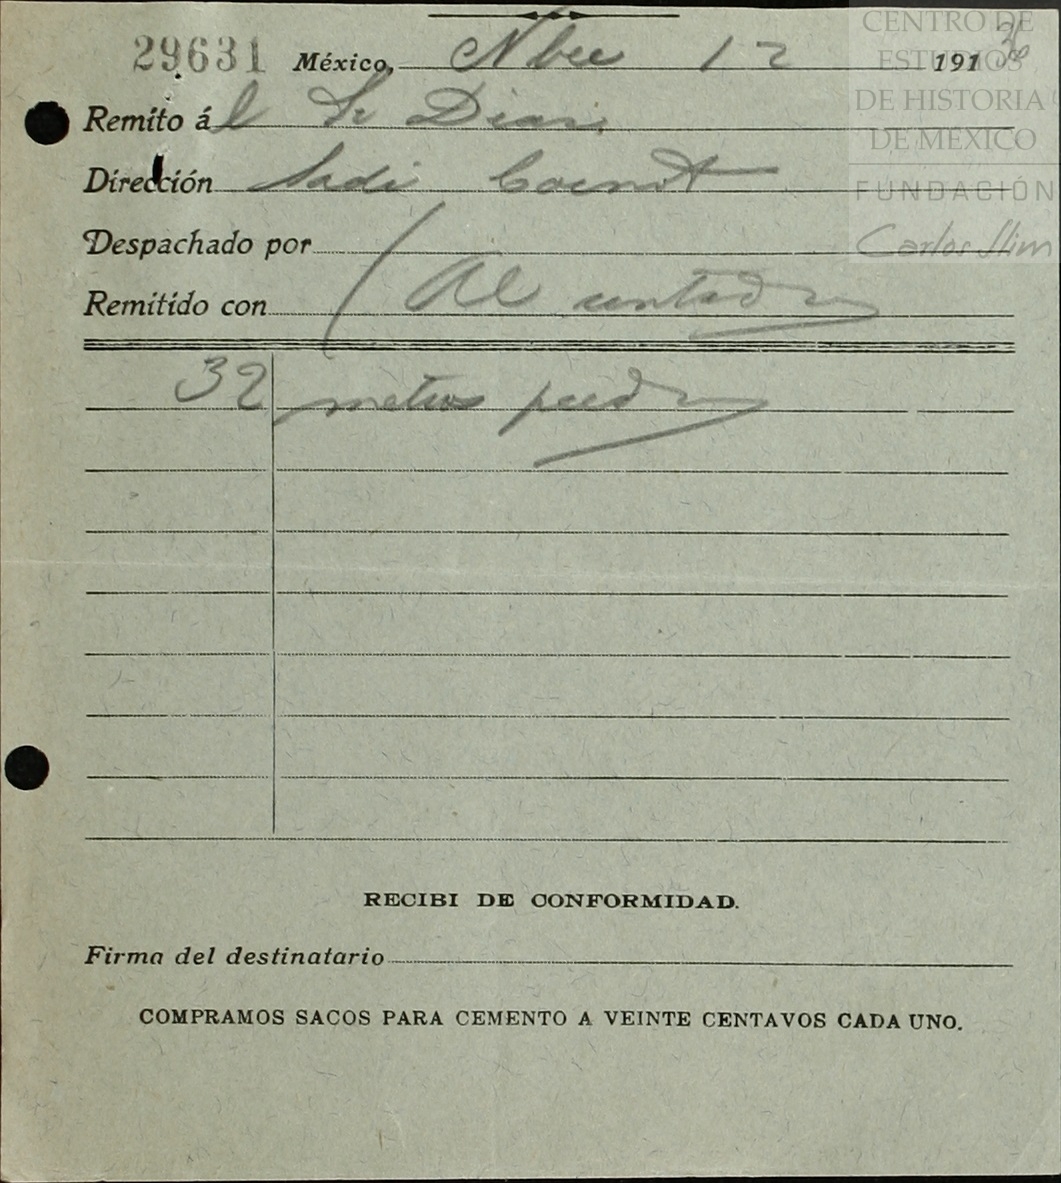 29631 México, Nbre 12 191
Remito ál Sr Dias
Dirección Sadi Carnot
Despachado por
Remitido con Al contado
32 metros piedra
RECIBI DE CONFORMIDAD.
Firma del destinatario
COMPRAMOS SACOS PARA CEMENTO A VEINTE CENTAVOS CADA UNO.
CENTRO DE
ESTUDIOS
DE HISTORIA
DE MÉXICO
FUNDACIÓN
Carlos Slim